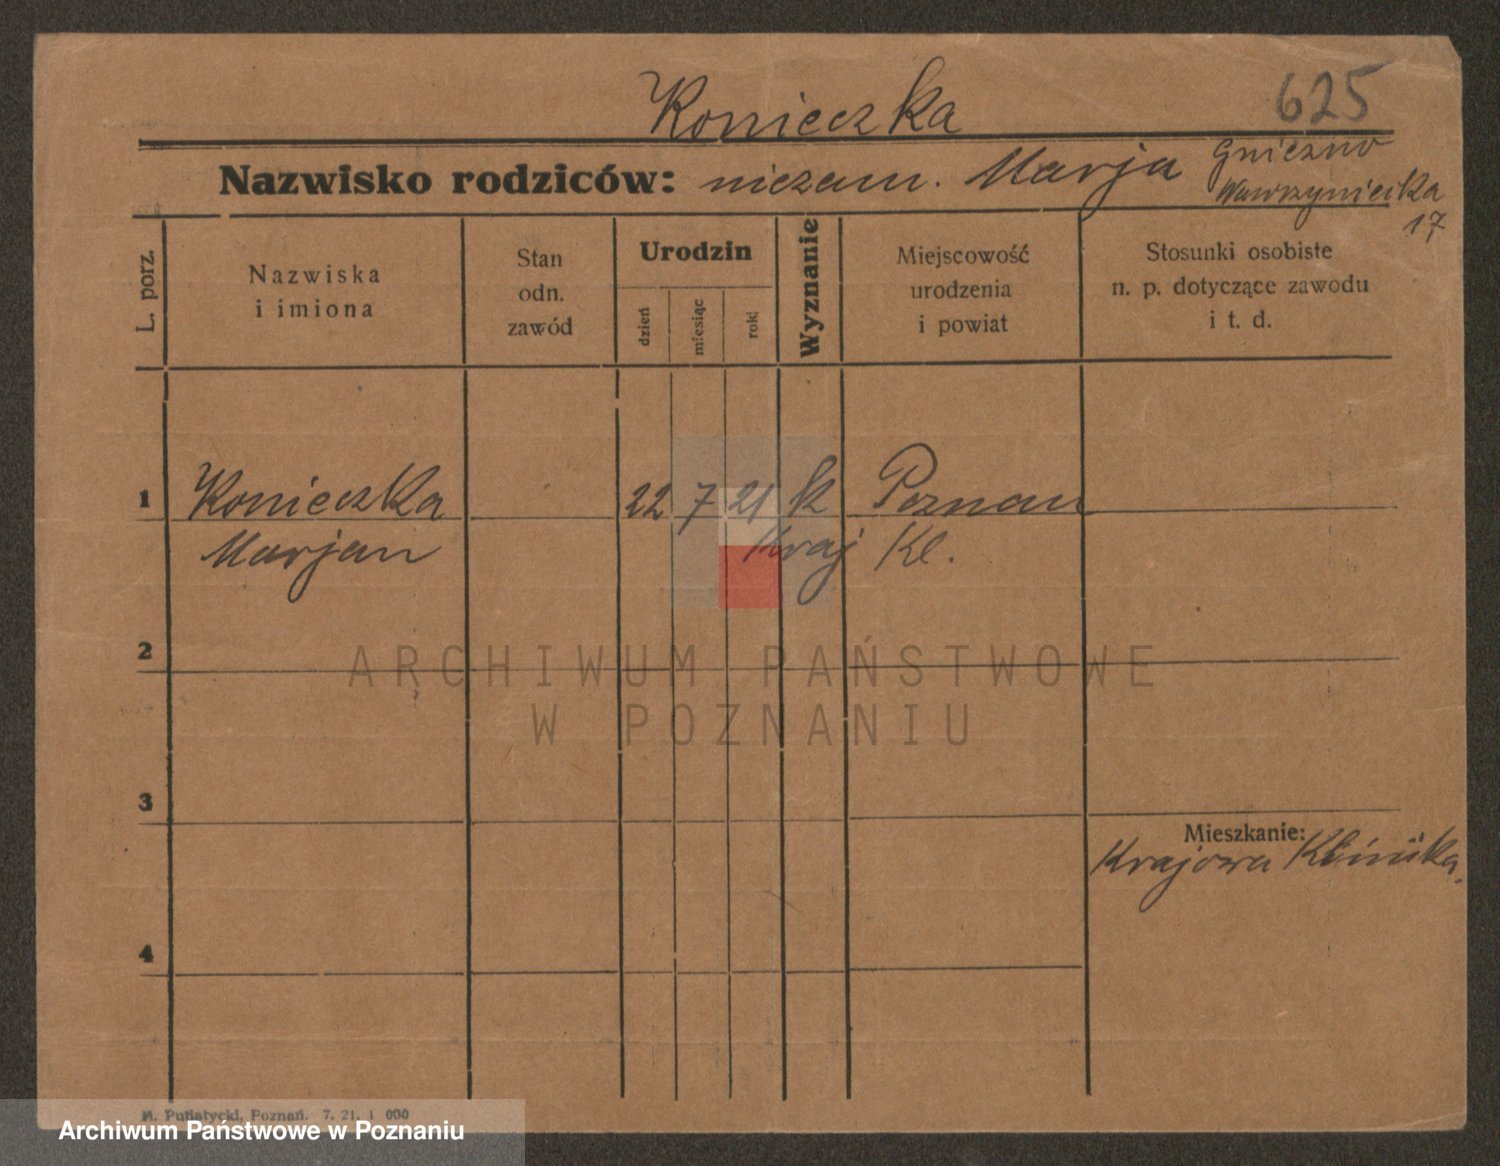 Konieczka 625
Nazwisko rodziców: niezam. Marja Gniezno
Wawrzyniecka
17
L. porz.
Nazwiska
i imiona
Stan
odn.
zawód
Urodzin
dzień
miesiąc
rok
Wyznanie
Miejscowość
urodzenia
i powiat
Stosunki osobiste
n. p. dotyczące zawodu
i t. d.
1 Konieczka 22 7 21 k Poznan
Marjan Kraj Kl.
2
ARCHIWUM PAŃSTWOWE
W POZNANIU
3
Mieszkanie:
Krajowa Klinika.
4
M. Putiatycki, Poznań. 7. 21. 1 000
Archiwum Państwowe w Poznaniu